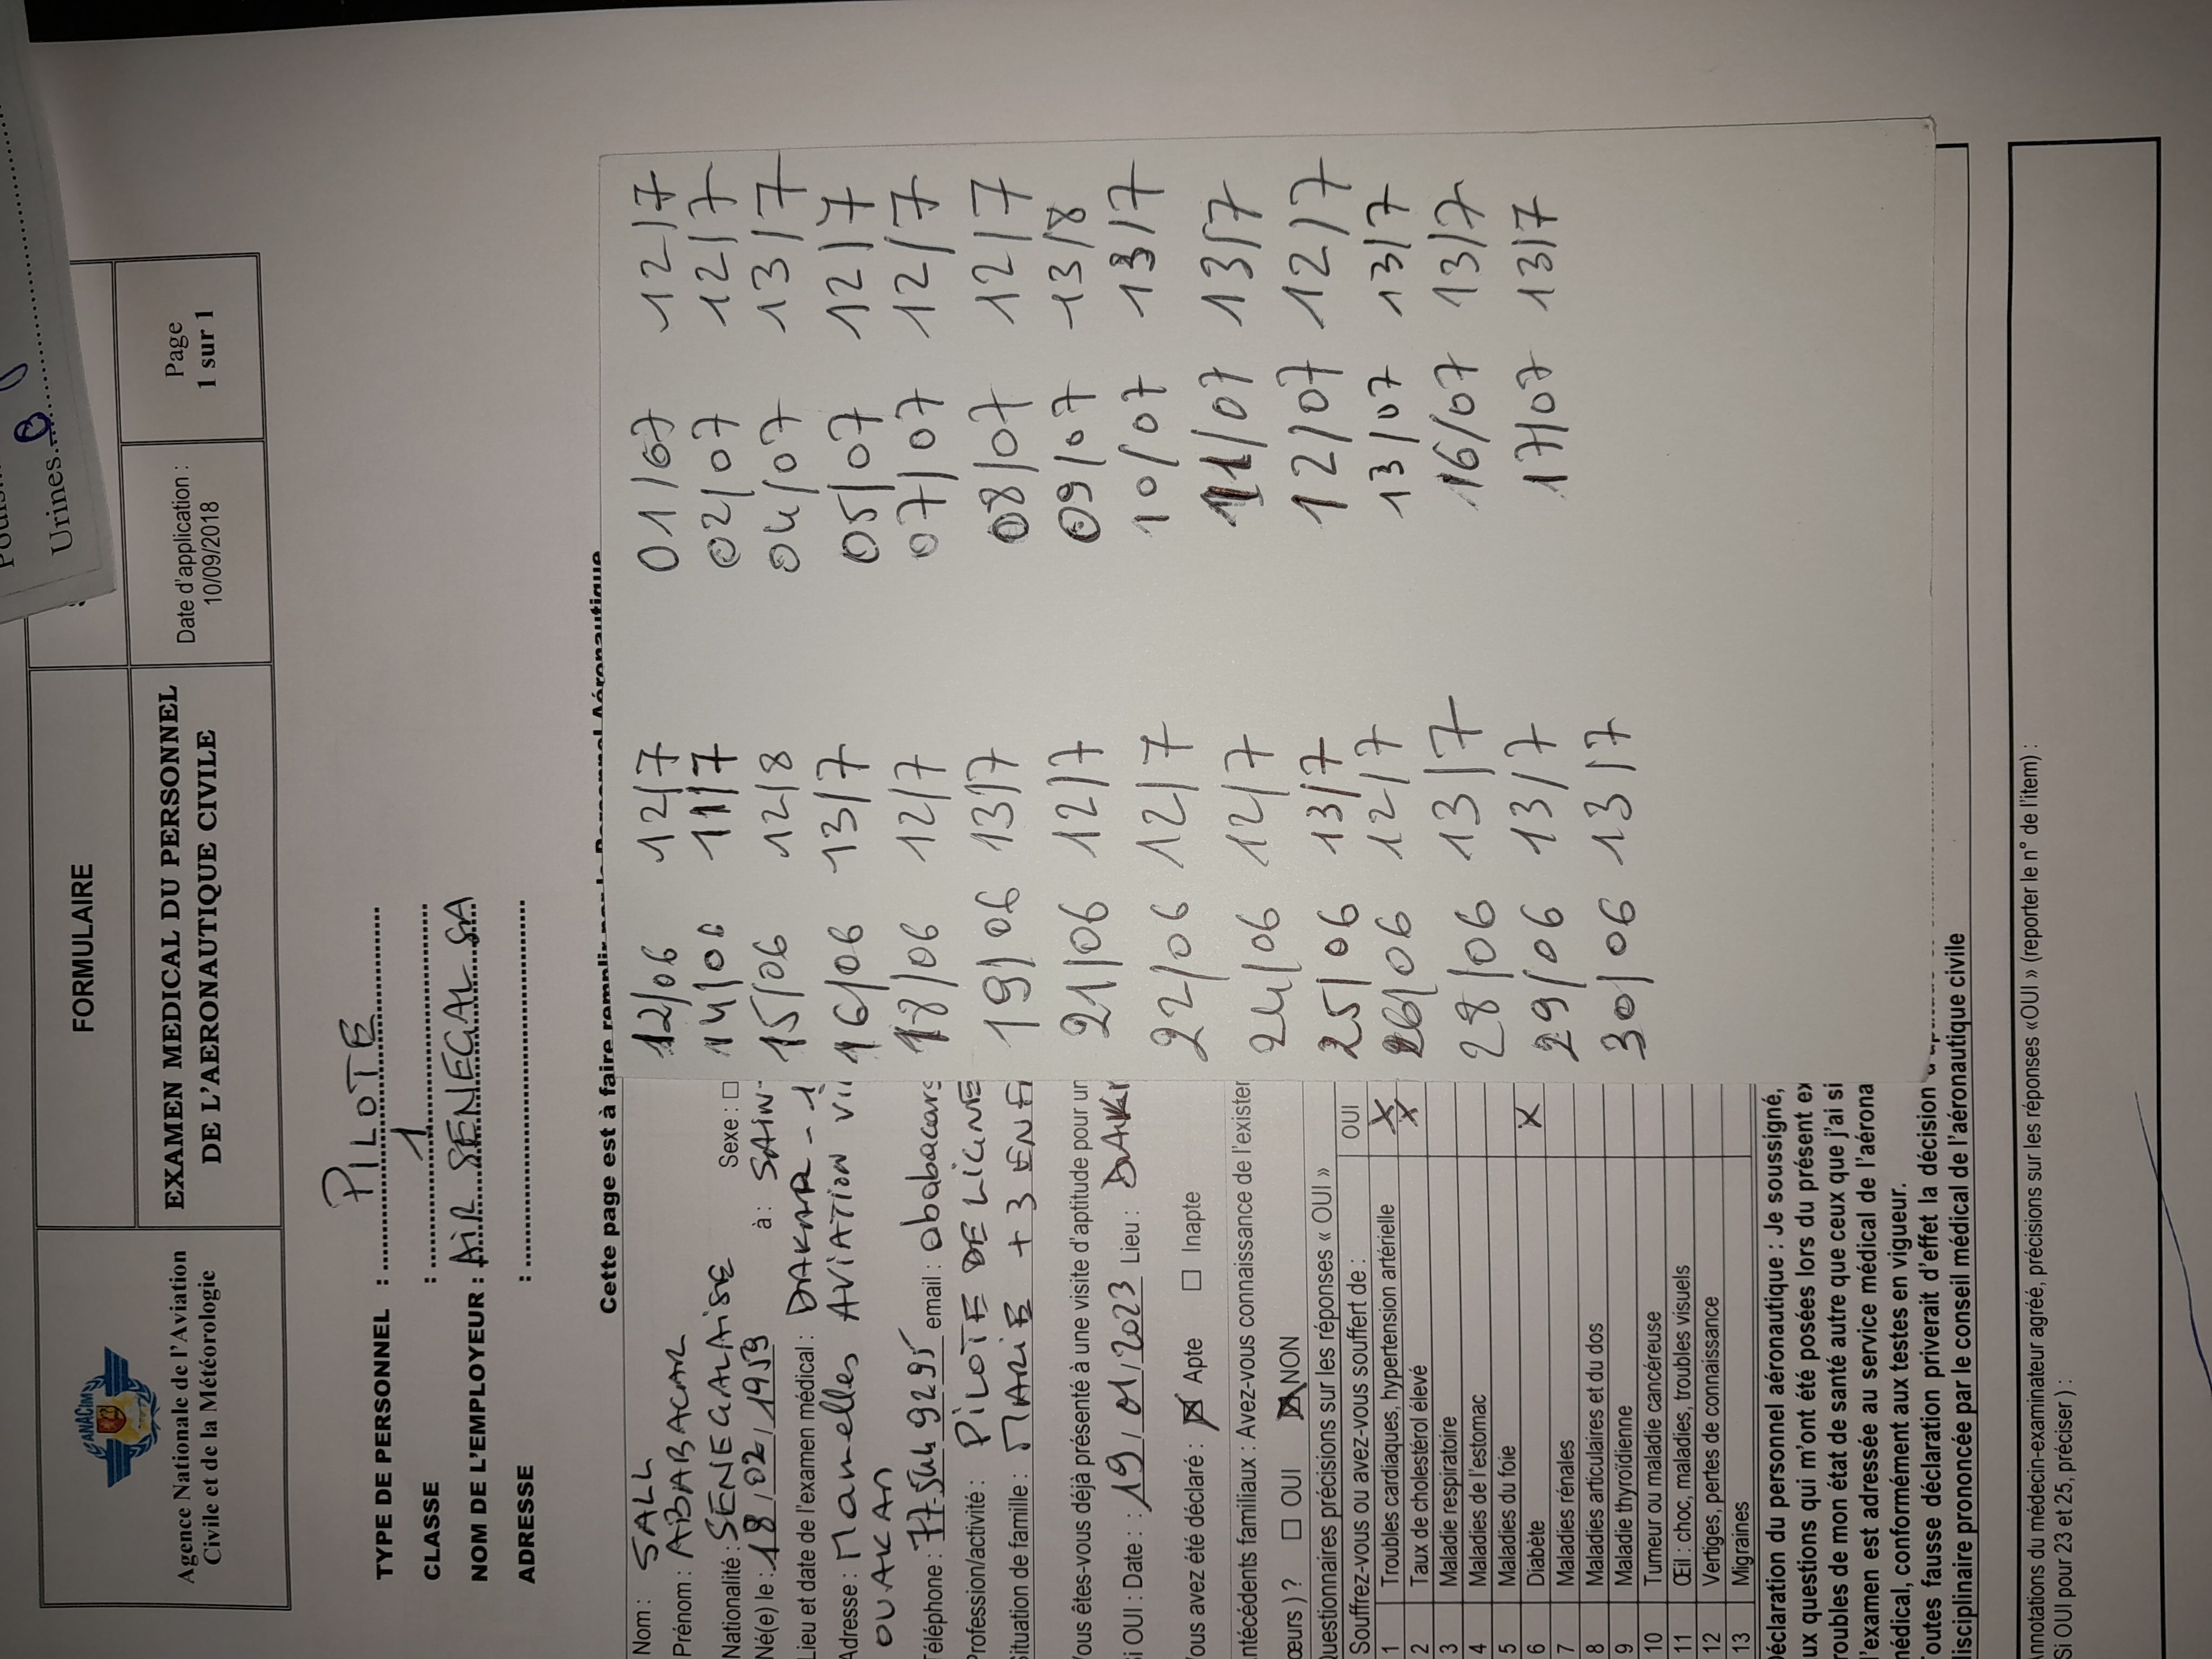 Urines
Agence Nationale de l'Aviation
Civile et de la Météorologie
ANACIM
FORMULAIRE
EXAMEN MEDICAL DU PERSONNEL
DE L'AERONAUTIQUE CIVILE
Date d'application :
10/09/2018
Page
1 sur 1
TYPE DE PERSONNEL : PILOTE
CLASSE : 1
NOM DE L'EMPLOYEUR : AIR SENEGAL SA
ADRESSE :
Cette page est à faire remplir par le Personnel Aéronautique
Nom : SALL
Prénom : ABABACAR
Nationalité : SENEGALAISE Sexe :
Né(e) le : 18/02/1959 à : SAIN
Lieu et date de l'examen médical : DAKAR - 1
Adresse : Mamelles AVIATION
OUAKAM
Téléphone : 77 544 9295 email : ababacars
Profession/activité : PILOTE DE LIGNE
Situation de famille : MARIE + 3 ENF
Vous êtes-vous déjà présenté à une visite d'aptitude pour un
Si OUI : Date : : 19/01/2023 Lieu : DAKAR
Vous avez été déclaré : ☒ Apte ☐ Inapte
Antécédents familiaux : Avez-vous connaissance de l'exister
œurs) ? ☐ OUI ☒ NON
Questionnaires précisions sur les réponses « OUI »
Souffrez-vous ou avez-vous souffert de : OUI
1 Troubles cardiaques, hypertension artérielle X
2 Taux de cholestérol élevé X
3 Maladie respiratoire
4 Maladies de l'estomac
5 Maladies du foie
6 Diabète X
7 Maladies rénales
8 Maladies articulaires et du dos
9 Maladie thyroïdienne
10 Tumeur ou maladie cancéreuse
11 Œil : choc, maladies, troubles visuels
12 Vertiges, pertes de connaissance
13 Migraines
Déclaration du personnel aéronautique : Je soussigné,
ux questions qui m'ont été posées lors du présent ex
roubles de mon état de santé autre que ceux que j'ai si
l'examen est adressée au service médical de l'aérona
médical, conformément aux testes en vigueur.
outes fausse déclaration priverait d'effet la décision
disciplinaire prononcée par le conseil médical de l'aéronautique civile
Annotations du médecin-examinateur agréé, précisions sur les réponses «OUI » (reporter le n° de l'item) :
Si OUI pour 23 et 25, préciser ) :
12/06 12/7
14/06 11/7
15/06 12/8
16/06 13/7
18/06 12/7
19/06 13/7
21/06 12/7
22/06 12/7
24/06 12/7
25/06 13/7
26/06 12/7
28/06 13/7
29/06 13/7
30/06 13/7
01/07 12/7
02/07 12/7
04/07 13/7
05/07 12/7
07/07 12/7
08/07 12/7
09/07 13/8
10/07 13/7
11/07 13/7
12/07 12/7
13/07 13/7
16/07 13/7
17/07 13/7